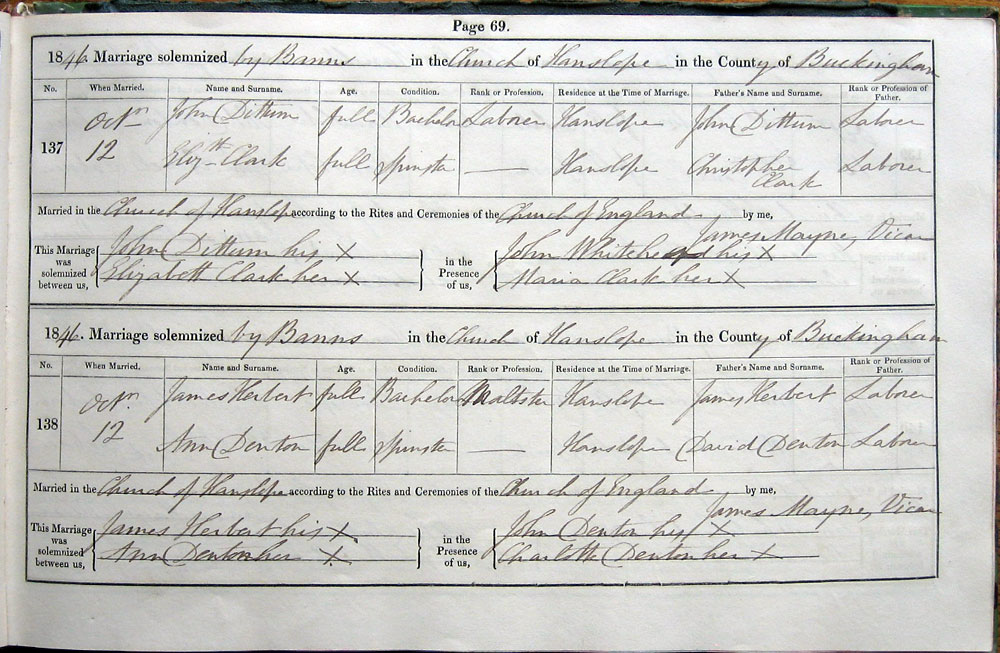 Page 69.
1846. Marriage solemnized by Banns in the Church of Hanslope in the County of Buckingham
No. When Married. Name and Surname. Age. Condition. Rank or Profession. Residence at the Time of Marriage. Father's Name and Surname. Rank or Profession of Father.
137 Octr 12 John Dittum full Bachelor Laborer Hanslope John Dittum Laborer
Elizth Clark full Spinster — Hanslope Christopher Clark Laborer
Married in the Church of Hanslope according to the Rites and Ceremonies of the Church of England by me,
James Mayne, Vicar
This Marriage was solemnized between us, John Dittum his X in the Presence of us, John Whitehead his X
Elizabett Clark her X Maria Clark her X
1846. Marriage solemnized by Banns in the Church of Hanslope in the County of Buckingham
No. When Married. Name and Surname. Age. Condition. Rank or Profession. Residence at the Time of Marriage. Father's Name and Surname. Rank or Profession of Father.
138 Octr. 12 James Herbert full Bachelor Maltster Hanslope James Herbert Laborer
Ann Denton full Spinster — Hanslope David Denton Laborer
Married in the Church of Hanslope according to the Rites and Ceremonies of the Church of England by me,
James Mayne, Vicar
This Marriage was solemnized between us, James Herbert his X in the Presence of us, John Denton his X
Ann Denton her X Charlotte Denton her X